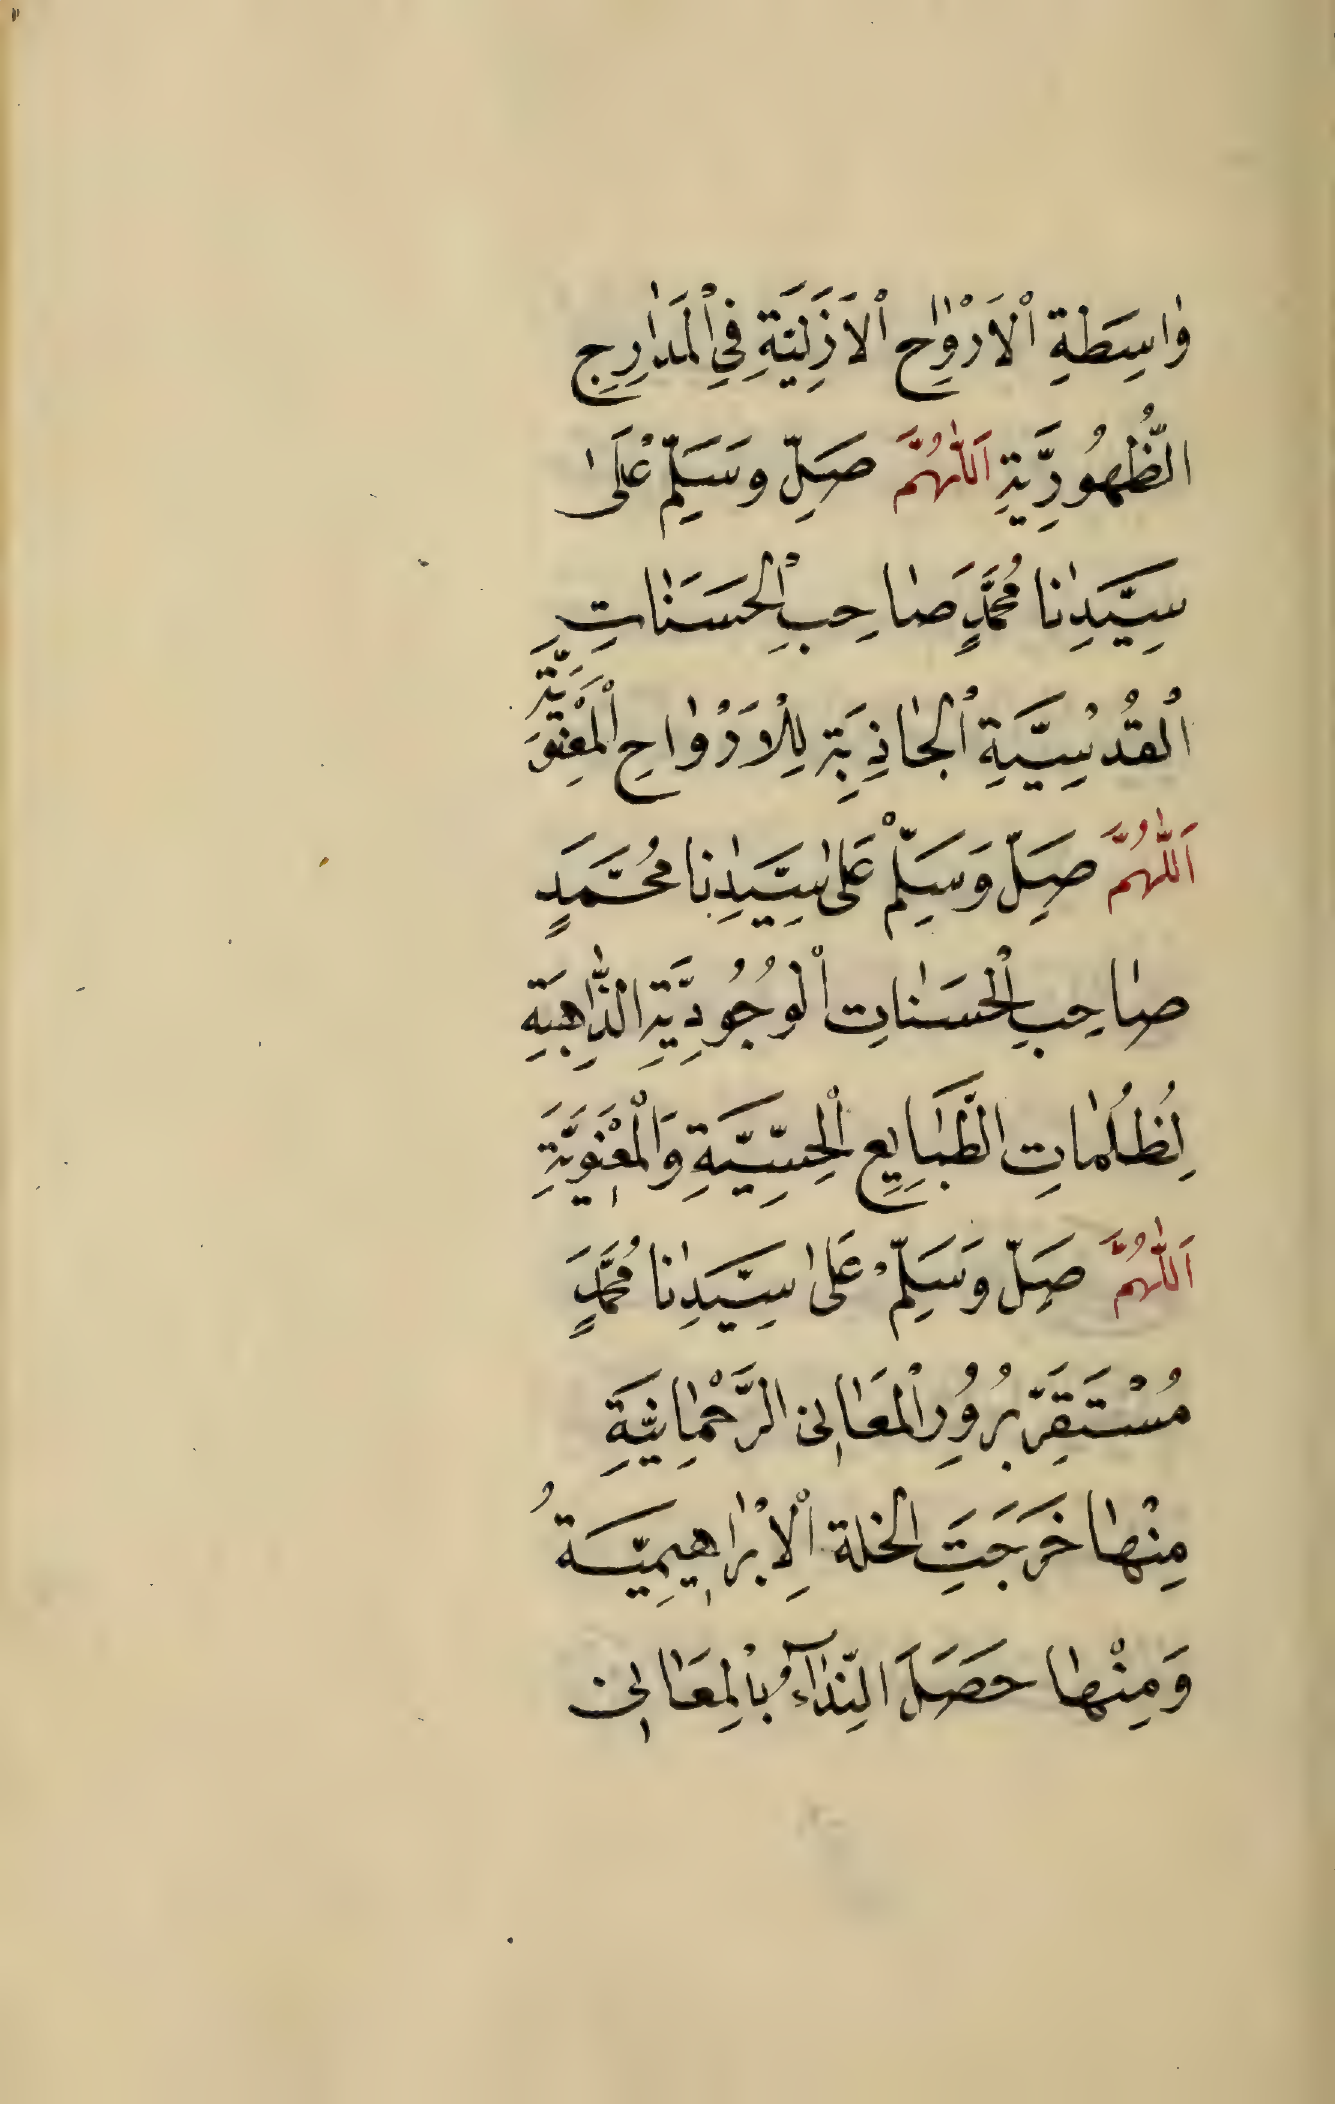 وٰاسِطَةِ اْلاَرْوٰاحِ اْلاَزَلِيَّةِ فِي اْلمَدٰارِجِ
الظُّهُورِيَّةِ اَللّٰهُمَّ صَلِّ وسَلِّمْ عَلٰى
سَيِّدِنٰا مُحَمَّدٍ صٰاحِبِ اْلحَسَنٰاتِ
اْلقُدْسِيَّةِ اْلجٰاذِبَةِ لِلْاَرْوٰاحِ اْلمَعْنَوِيَّةِ
اَللّٰهُمَّ صَلِّ وَسَلِّمْ عَلٰى سَيِّدِنٰا مُحَمَّدٍ
صٰاحِبِ اْلحَسَنٰاتِ اْلوُجُودِيَّةِ الذّٰاهِبَةِ
لِظُلُمٰاتِ الطَّبَايِعِ اْلحِسِّيَّةِ وَاْلمَعْنَوِيَّةِ
اَللّٰهُمَّ صَلِّ وَسَلِّمْ عَلٰى سَيِّدِنٰا مُحَمَّدٍ
مُسْتَقَرِّ بُرُورِ اْلمَعٰانِى الرَّحْمٰانِيَّةِ
مِنْهٰا خَرَجَتِ الخلة اْلاِبْرٰاهِيمِيَّةُ
وَمِنْهٰا حَصَلَ النِّدٰآءُ بِاْلمَعٰانِى